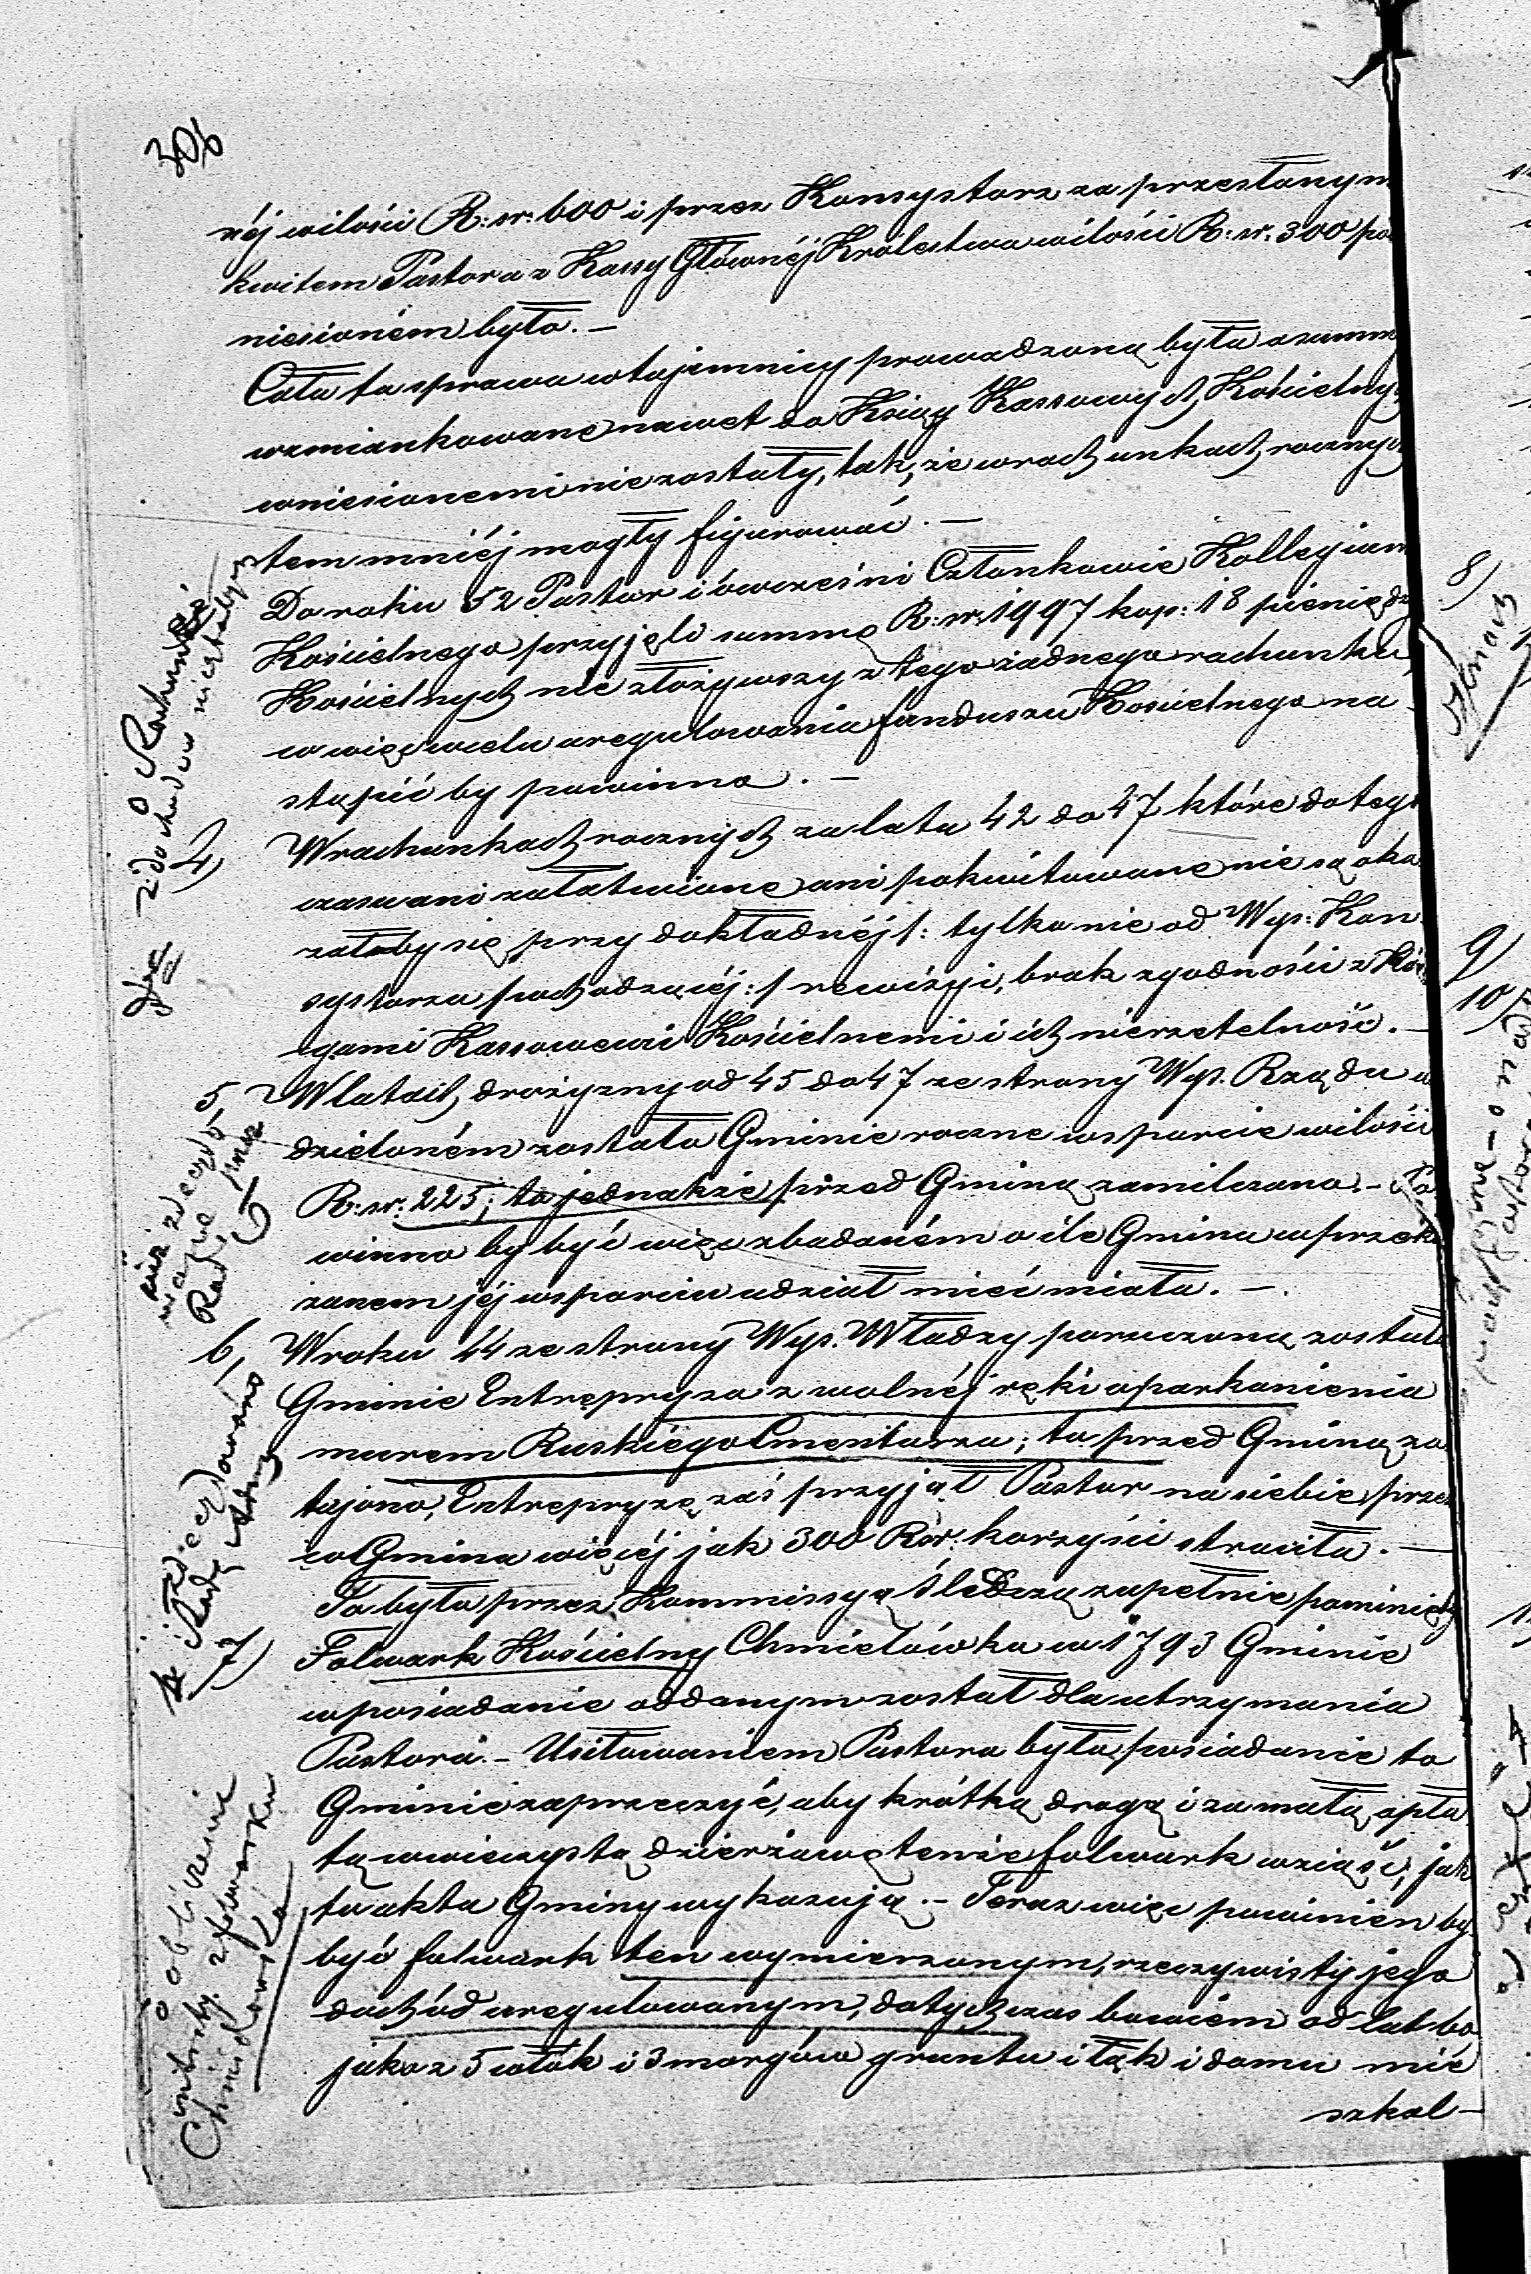 306
néj w ilości R: sr: 600 i przez Konsystorz za przesłanym
kwitem Pastora z Kassy Głównéj Królestwa w ilości R: sr: 300 po
niesioném było. —
Cała ta sprawa w tajemnicy prowadzoną była a summy
wzmiankowane nawet do Ksiąg Kassowych Kościelnych
wniesionemi nie zostały, tak, że w rachunkach rocznych
tem mniéj mogły figurować. —
Do roku 52 Pastor i ówcześni Członkowie Kollegium
Kościelnego przyjęli summę R: sr: 1997 kop: 18 pieniędzy
Kościelnych nie złożywszy z tego żadnego rachunku,
co więc w celu uregulowania funduszu Kościelnego na
stąpić by powinno. —
4) W rachunkach rocznych za lata 42 do 47 które do tego
czasu ani załatwione ani pokwitowane nie są oka
załoby się przy dokładnéj /: tylko nie od Wys: Kon
systorza pochodzącéj :/ rewizyi, brak zgodności z Ksi
ęgami Kassowemi Kościelnemi i ich nierzetelność. —
5, W latach drożyzny od 45 do 47 ze strony Wys. Rządu u
dzieloném zostało Gminie roczne wsparcie w ilości
R: sr: 225; to jednakże przed Gminą zamilczano. — Po
winno by być więc zbadaném o ile Gmina w przeka
zanem jéj wsparciu udział mieć miała. —
6, W roku 44 ze strony Wys. Władzy poruczoną została
Gminie Entrepryza z wolnéj ręki oparkanienia
murem Ruskiego Cmentarza; to przed Gminą za
tajono, Entrepryzę zaś przyjął Pastor na siebie, przez
co Gmina więcéj jak 300 Rsr. korzyści straciła. —
To było przez Kommissyą Śledczą zupełnie pominięte
7) Folwark Kościelny Chmielówka w 1793 Gminie
w posiadanie oddanym został dla utrzymania
Pastora. — Usiłowaniem Pastora było, posiadanie to
Gminie zaprzeczyć, aby krótką drogą i za małą opła
tą w wieczystą dzierżawę tenże folwark wziąść, jak
to akta Gminy wykazują. — Teraz więc powinien by
być folwark ten wymierzonym, rzeczywisty jego
dochód uregulowanym, dotychczas bowiem od lat 60
jako z 5 włók i 3 morgów gruntu i łąk i domu mie
szkal —
o Rachunki
z dochodów niestałych
Radę
o obliczenie
z folwarku
8)
9)
10)